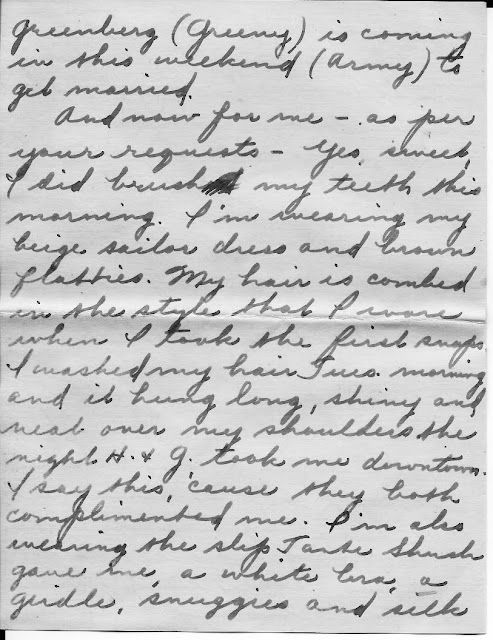 Greenberg (Greeny) is coming
in this weekend (Army) to
get married.
And now for me - as per
your requests - Yes, sweet,
I did brush my teeth this
morning. I'm wearing my
beige sailor dress and brown
flatties. My hair is combed
in the style that I wore
when I took the first snaps.
I washed my hair Tues. morning
and it hung long, shiny and
neat over my shoulders the
night H. & G. took me downtown.
I say this, 'cause they both
complimented me. I'm also
wearing the slip Tante Shush
gave me, a white bra, a
girdle, snuggies and silk